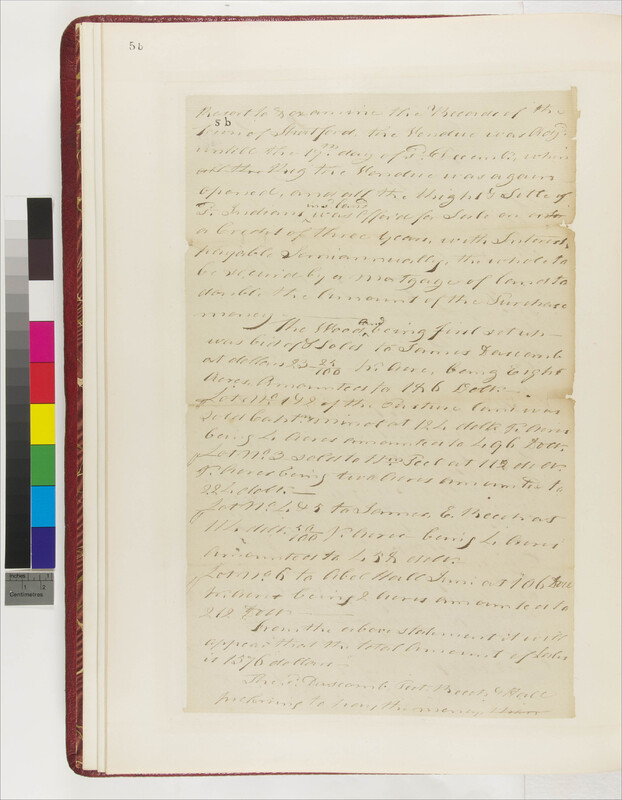 5b
resort to & examine the Records of the
5b
Town of Stratford. the Vendue was
untill the 17th day of
the Vendue was again
opened, and all the Right & Title of
Sd. Indians in sd land was offerd for Sale on
a Credet of three years, with Interest
payable Semiannually, the whole to
be secured by a mortgage of land to
double the Amount of the Purchase
money
The Wood land being first set up
was bid of & Sold to James
at dollars 23 25/100 Pr Acre, being Eight
Acres Amounted to 186 Dolls.
Lot No. 1 & 2 of the Pasture land was
Sold Capt minot at 124 dolls Pr Acre
being 4 Acres amounted to 496 Dolls.
Lot No. 3 sold to Peet at 112 dolls.
Pr Acre being two Acres amounted to
224 dolls.
Lot No. 4 & 5 to James. E. at
114 dolls 50/100 Pr Acre being 4 Acres
Amounted to 458 dolls.
Lot No. 6 to Abel Hall Junr at 106 Dolls
Pr Acre being 2 Acres amounted to
212 Dolls
From the above statement it will
appear that the total Amount of Sales
is 1576 dollars
Peet & Hall
prefering to pay the money